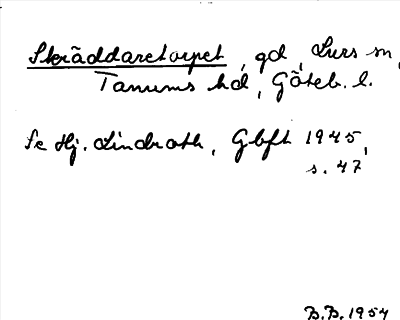 Skräddaretorpet, gd, Lurs sn,
Tanums hd, Göteb. l.
Se Hj. Lindroth, Gbft 1945,
s. 47
B.B. 1954